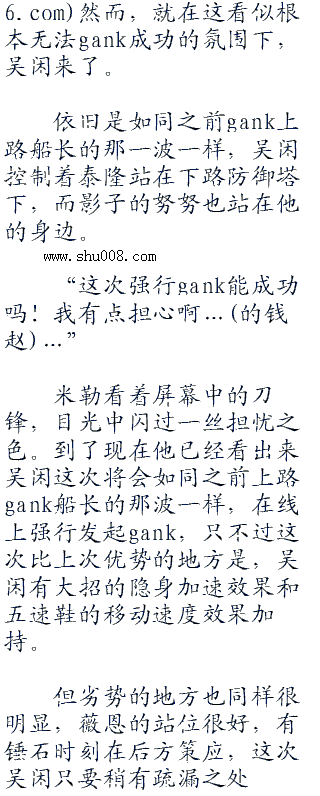 6.com)然而，就在这看似根
本无法gank成功的氛围下，
吴闲来了。
依旧是如同之前gank上
路船长的那一波一样，吴闲
控制着泰隆站在下路防御塔
下，而影子的努努也站在他
的身边。
www.shu008.com
“这次强行gank能成功
吗！我有点担心啊…(的钱
赵)…”
米勒看着屏幕中的刀
锋，目光中闪过一丝担忧之
色。到了现在他已经看出来
吴闲这次将会如同之前上路
gank船长的那波一样，在线
上强行发起gank，只不过这
次比上次优势的地方是，吴
闲有大招的隐身加速效果和
五速鞋的移动速度效果加
持。
但劣势的地方也同样很
明显，薇恩的站位很好，有
锤石时刻在后方策应，这次
吴闲只要稍有疏漏之处